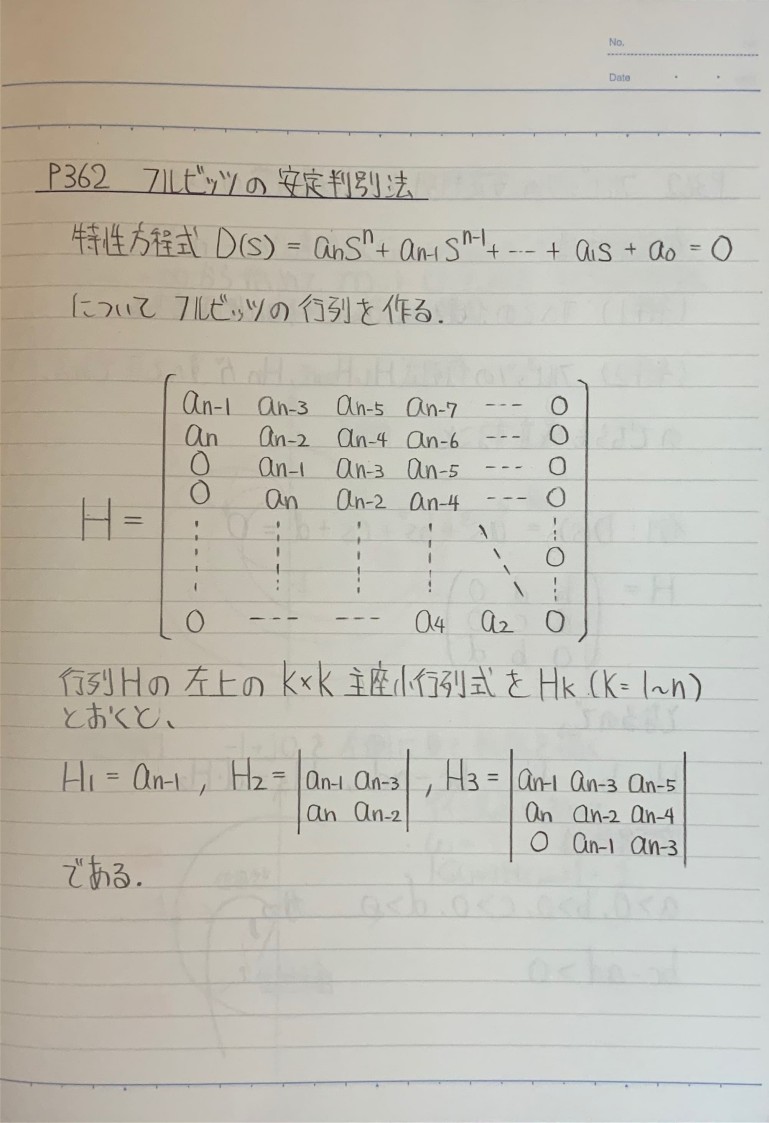 No.
Date
P362 フルビッツの安定判別法
特性方程式 D(s) = aₙsⁿ + aₙ₋₁sⁿ⁻¹ + --- + a₁s + a₀ = 0
について フルビッツの行列を作る.
aₙ₋₁ aₙ₋₃ aₙ₋₅ aₙ₋₇ --- 0
aₙ aₙ₋₂ aₙ₋₄ aₙ₋₆ --- 0
0 aₙ₋₁ aₙ₋₃ aₙ₋₅ --- 0
0 aₙ aₙ₋₂ aₙ₋₄ --- 0
H =
0
0 --- --- a₄ a₂ 0
行列Hの左上の k×k 主座小行列式を Hk (k=1~n)
とおくと、
H₁ = aₙ₋₁ , H₂ = |aₙ₋₁ aₙ₋₃| , H₃ = |aₙ₋₁ aₙ₋₃ aₙ₋₅|
|aₙ aₙ₋₂| |aₙ aₙ₋₂ aₙ₋₄|
|0 aₙ₋₁ aₙ₋₃|
である.